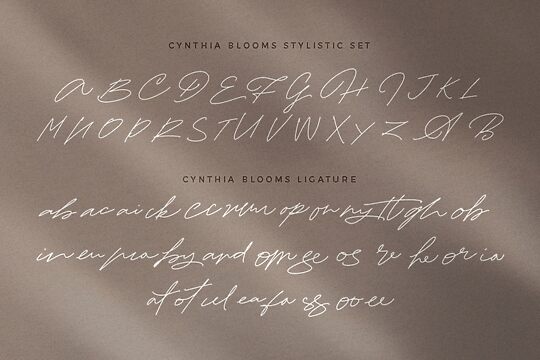 CYNTHIA BLOOMS STYLISTIC SET
A B C D E F G H I J K L
M N O P R S T U V W X Y Z A B
CYNTHIA BLOOMS LIGATURE
ab ac ai ck cc rr um op on ny tt gh ob
in en by and om ge os re he or ia
at ot ul ea fa ss oo ee